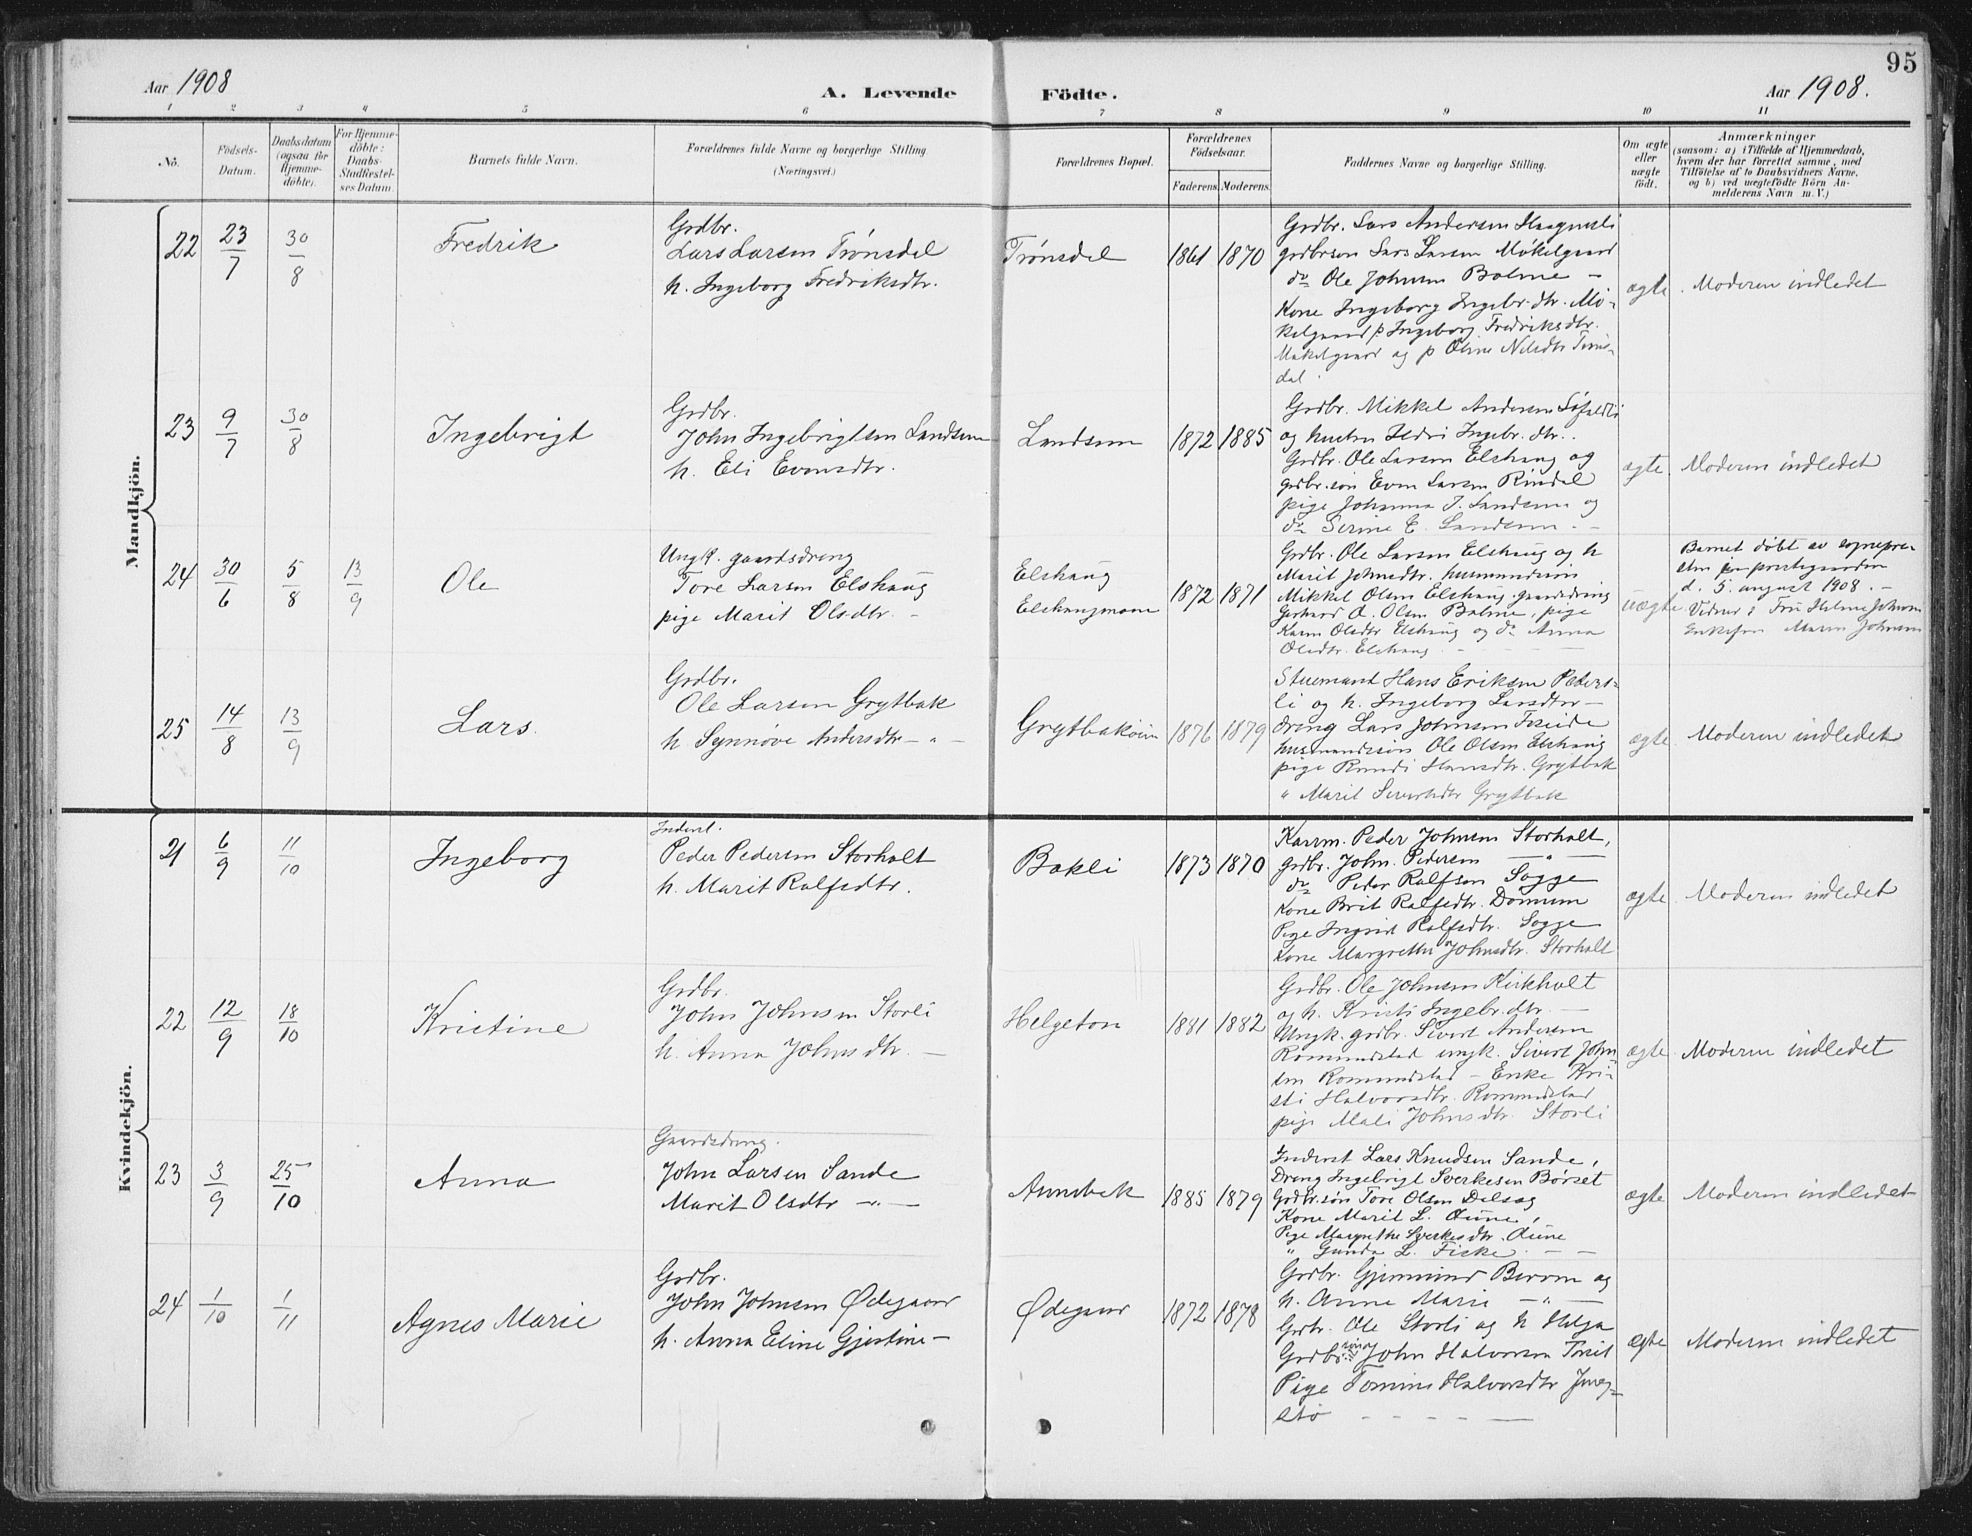 95
Aar 1908
A. Levende
Födte.
Aar 1908.
1 2 3 4 5 6 7 8 9 10 11
No.
Födsels-Datum.
Daabsdatum (ogsaa for Hjemme-döbte).
For Hjemme-döbte: Daabs-Stadfæstel-ses Datum.
Barnets fulde Navn.
Forældrenes fulde Navne og borgerlige Stilling
(Næringsvei.)
Forældrenes Bopæl.
Forældrenes Födselsaar.
Faderens. Moderens.
Faddernes Navne og borgerlige Stilling.
Om ægte eller uægte födt.
Anmærkninger
(saasom: a) i Tilfælde af Hjemmedaab,
hvem der har forrettet samme, med
Tilföielse af to Daabsvidners Navne,
og b) ved uægtefödte Börn An-
melderens Navn m. V.)
Mandkjön.
22 23/7 30/8 Fredrik
Grdbr.
Lars Larsen Trønsdal
h. Ingeborg Fredriksdtr.
Trønsdal 1861 1870
Grdbr. Lars Andersen
grdbrsøn Lars Larsen Møkelgaard
do Ole Johnsen Bolme –
Kone Ingeborg Ingebr.dtr. Mø-
kelgaard p Ingeborg Fredriksdtr.
Møkelgaard og p Oline Nilsdtr Trøns-
dal.
ægte. Moderen indledet
23 9/7 30/8 Ingebrigt
Grdbr.
John Ingebrigtsen Landsem
h. Eli Evensdtr.
Landsem 1872 1885
Grdbr. Mikkel Andersen
og hustru Ildri Ingebr.dtr.
Grdbr. Ole Larsen Elshaug og
grdbr.søn Even Larsen Rindal
pige Johanna J. Landsem og
do Serine E. Landsem. –
ægte. Moderen indledet
24 30/6 5/8 13/9 Ole
Ungk. gaardsdreng
Tore Larsen Elshaug
pige Marit Olsdtr. –
Elshaug
Elshaugmoen
1872 1871
Grdbr. Ole Larsen Elshaug og h
Marit Johnsdtr. husmandssøn
Mikkel Olsen Elshaug. gaardsdreng
Gerhard O. Olsen Bolme, pige
Karen Olsdtr Elshaug og do Anna
Olsdtr. Elshaug.
uægte
Barnet døbt av sognepre-
sten paa prestegaarden
d. 5. august 1908. –
Vidner: Fru Helene Johnsen
Enkefru Maren Johnsen
25 14/8 13/9 Lars.
Grdbr.
Ole Larsen Grytbak
h Synnøve Andersdtr – " –
Grytbakøien 1876 1879
Stuemand Hans Eriksen Peders-
li og h. Ingeborg Larsdtr –
dreng Lars Johnsen Foseide
husmandssøn Ole Olsen Elshaug
pige Randi Hansdtr. Grytbak
" Marit Sivertsdtr Grytbak
ægte Moderen indledet
Kvindekjön.
21 6/9 11/10 Ingeborg
Inderst.
Peder Pedersen Storholt
h. Marit Rolfsdtr.
Bakli 1873 1870
Kaarm. Peder Johnsen Storholt,
grdbr. John. Pedersen – " –
do Peder Rolfsen Sogge
Kone Brit Rolfsdtr. Domum
Pige Ingrid Rolfsdtr. Sogge
Kone Margrethe Johnsdtr. Storholt
ægte Moderen indledet
22 12/9 18/10 Kristine
Grdbr.
John Johnsen Storli
h. Anna Johnsdtr. –
Helgeton 1881 1882
Grdbr. Ole Johnsen Kirkholt
og h. Kristi Ingebr.dtr. –
Ungk. grdbr. Sivert Andersen
Romundstad ungk. Sivert John-
sen Romundstad – Enke Kri-
sti Halvorsdtr. Romundstad
pige Mali Johnsdtr. Storli
ægte. Moderen indledet
23 3/9 25/10 Anna
Gaardsdreng.
John Larsen Sande
Marit Olsdtr – " –
Aunebak 1885 1879
Inderst Lars Knudsen Sande,
Dreng Ingebrigt Sverkesen Børset
Grdbr.søn Tore Olsen Dalsæg
Kone Marit L. Aune,
Pige Margrethe Sverkesdtr. Aune
" Gunda L. Fiske. – –
ægte Moderen indledet
24 1/10 1/11 Agnes Marie
Grdbr.
John Johnsen Ødegaard
h. Anna Eline Gjertine –
Ødegaard 1872 1878
Grdbr. Gjermund Bævren og
h. Anne Marie – " –
Grbr. Ole Storli og h Helga
Grdbrsøn John Halvorsen
Pige Tomine Halvorsdtr
stø – – – –
ægte Moderen indledet